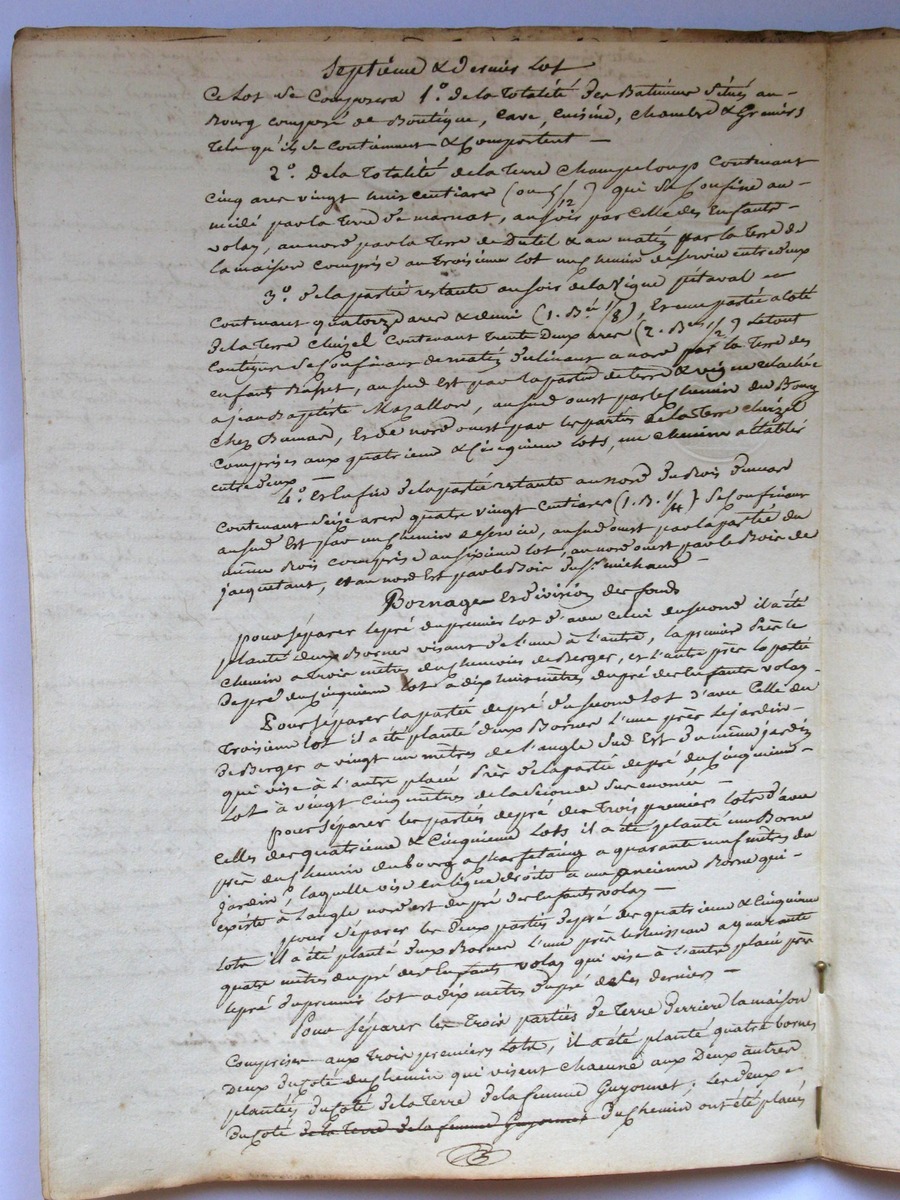 Septième & dernier Lot
Ce Lot se Composera 1.° de la Totalité des Batimens situés au
Bourg composé de Boutique, Cave, Cuisine, Chambre & Greniers
Tels qu'ils se Contiennent & Comportent —
2.° De la Totalité de la Terre Champeloup Contenant
Cinq ares vingt huit centiares (ou 5/12) qui se Confine au
midi par la Terre de marnat, au soir par Celle des Enfants
volay, au nord par la Terre de Dutel & au matin par la Terre de
la maison comprise au Troisième lot un Chemin de service entre deux
3.° de la partie restante au soir de la Vigne petaval
Contenant quatorze ares & demi (1. B.ée 1/8), Et une partie a côté
de la Terre Cheizel Contenant Trente Deux ares (2. B.es 1/2) Le tout
Contigu se Confinant de matin déclinant a nord par la Terre des
enfants Rasset, au sud est par la partie de terre & vigne relachée
a jean Baptiste Mazallon, au sud ouest par le Chemin du Bourg
Chez Bumard, Et de nord ouest par les parties de la Terre Cheizel
Comprises aux quatrieme & Cinquieme Lots, un Chemin a Etablir
entre deux —
4.° Et Enfin de la partie restante au nord du Bois
Contenant Seize ares quatre vingt Centiares (1. B. 1/4) Se Confinant
au sud Est par un Chemin de service, au sud ouest par la partie du
même Bois Comprise au sixieme Lot, au nord ouest par le Bois de
jacquetant, et au nord Est par le Bois du S.r michaud —
Bornage Et division des fonds
pour séparer le pré du premier lot d'avec Celui du second il a été
planté deux Bornes visant de l'une à l'autre, la premier Près le
Chemin a Trois mètres du de Berger, et l'autre près la partie
de pré du Cinquieme Lot a dix huit mètres du pré des Enfants volay -
Pour séparer la partie de pré du second Lot d'avec Celle du
Troisieme Lot il a été planté deux Bornes L'une près Le jardin
de Berger a vingt un mètres de l'angle Sud Est du même jardin
qui vise à L'autre placé Près de la partie de pré du Cinquieme
Lot à vingt Cinq mètres de la seconde Surnomée —
pour séparer les parties de pré des Trois premiers Lots d'avec
Celles des quatrieme & Cinquieme Lots il a été planté une Borne
près du Chemin du bourg a a quarante un mètres du
jardin, laquelle vise en ligne droite à une ancienne Borne qui
existe à l'angle nord est du pré des Enfants volay —
pour séparer les deux parties de pré des quatrieme & Cinquieme
Lots il a été planté deux Bornes L'une près le ruisseau a quarante
quatre mètres du pré des Enfants volay qui vise à L'autre placé près
le pré du premier Lot a dix mètres du pré de Ces derniers —
Pour séparer les Trois parties de Terre derrière la maison
Comprises aux Trois premiers Lots, il a été planté quatre bornes
Deux du Coté du Chemin qui visent Chacune aux Deux autres
plantées du Coté de la Terre de la femme Guyonnet ; Les deux
du Coté de la Terre de la femme Guyonnet du Chemin ont été placés